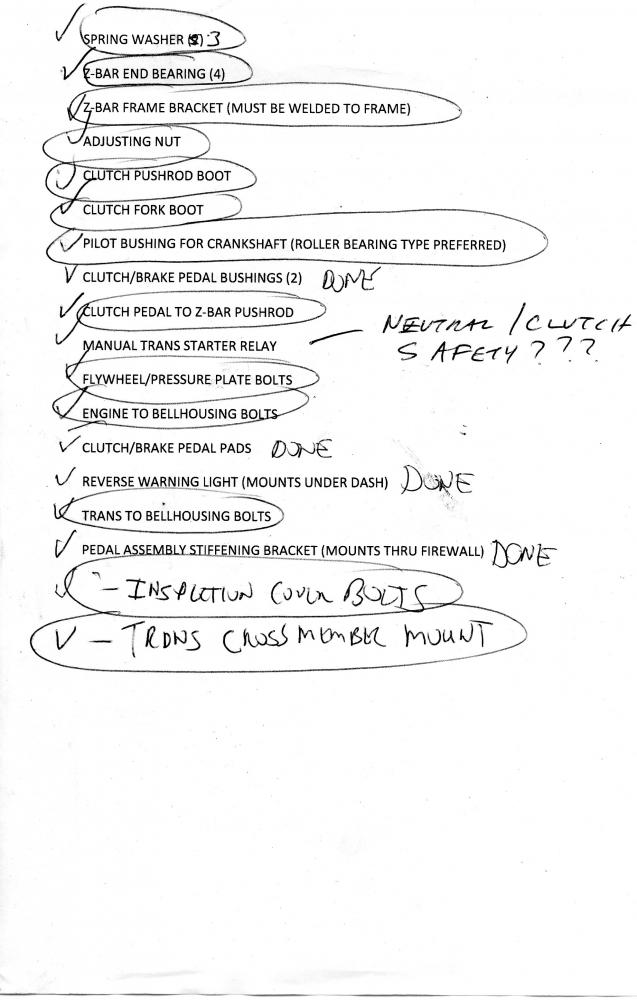 SPRING WASHER () 3
Z-BAR END BEARING (4)
Z-BAR FRAME BRACKET (MUST BE WELDED TO FRAME)
ADJUSTING NUT
CLUTCH PUSHROD BOOT
CLUTCH FORK BOOT
PILOT BUSHING FOR CRANKSHAFT (ROLLER BEARING TYPE PREFERRED)
CLUTCH/BRAKE PEDAL BUSHINGS (2) DONE
CLUTCH PEDAL TO Z-BAR PUSHROD
MANUAL TRANS STARTER RELAY — NEUTRAL / CLUTCH
SAFETY???
FLYWHEEL/PRESSURE PLATE BOLTS
ENGINE TO BELLHOUSING BOLTS
CLUTCH/BRAKE PEDAL PADS DONE
REVERSE WARNING LIGHT (MOUNTS UNDER DASH) DONE
TRANS TO BELLHOUSING BOLTS
PEDAL ASSEMBLY STIFFENING BRACKET (MOUNTS THRU FIREWALL) DONE
- INSPECTION COVER BOLTS
- TRANS CROSSMEMBER MOUNT